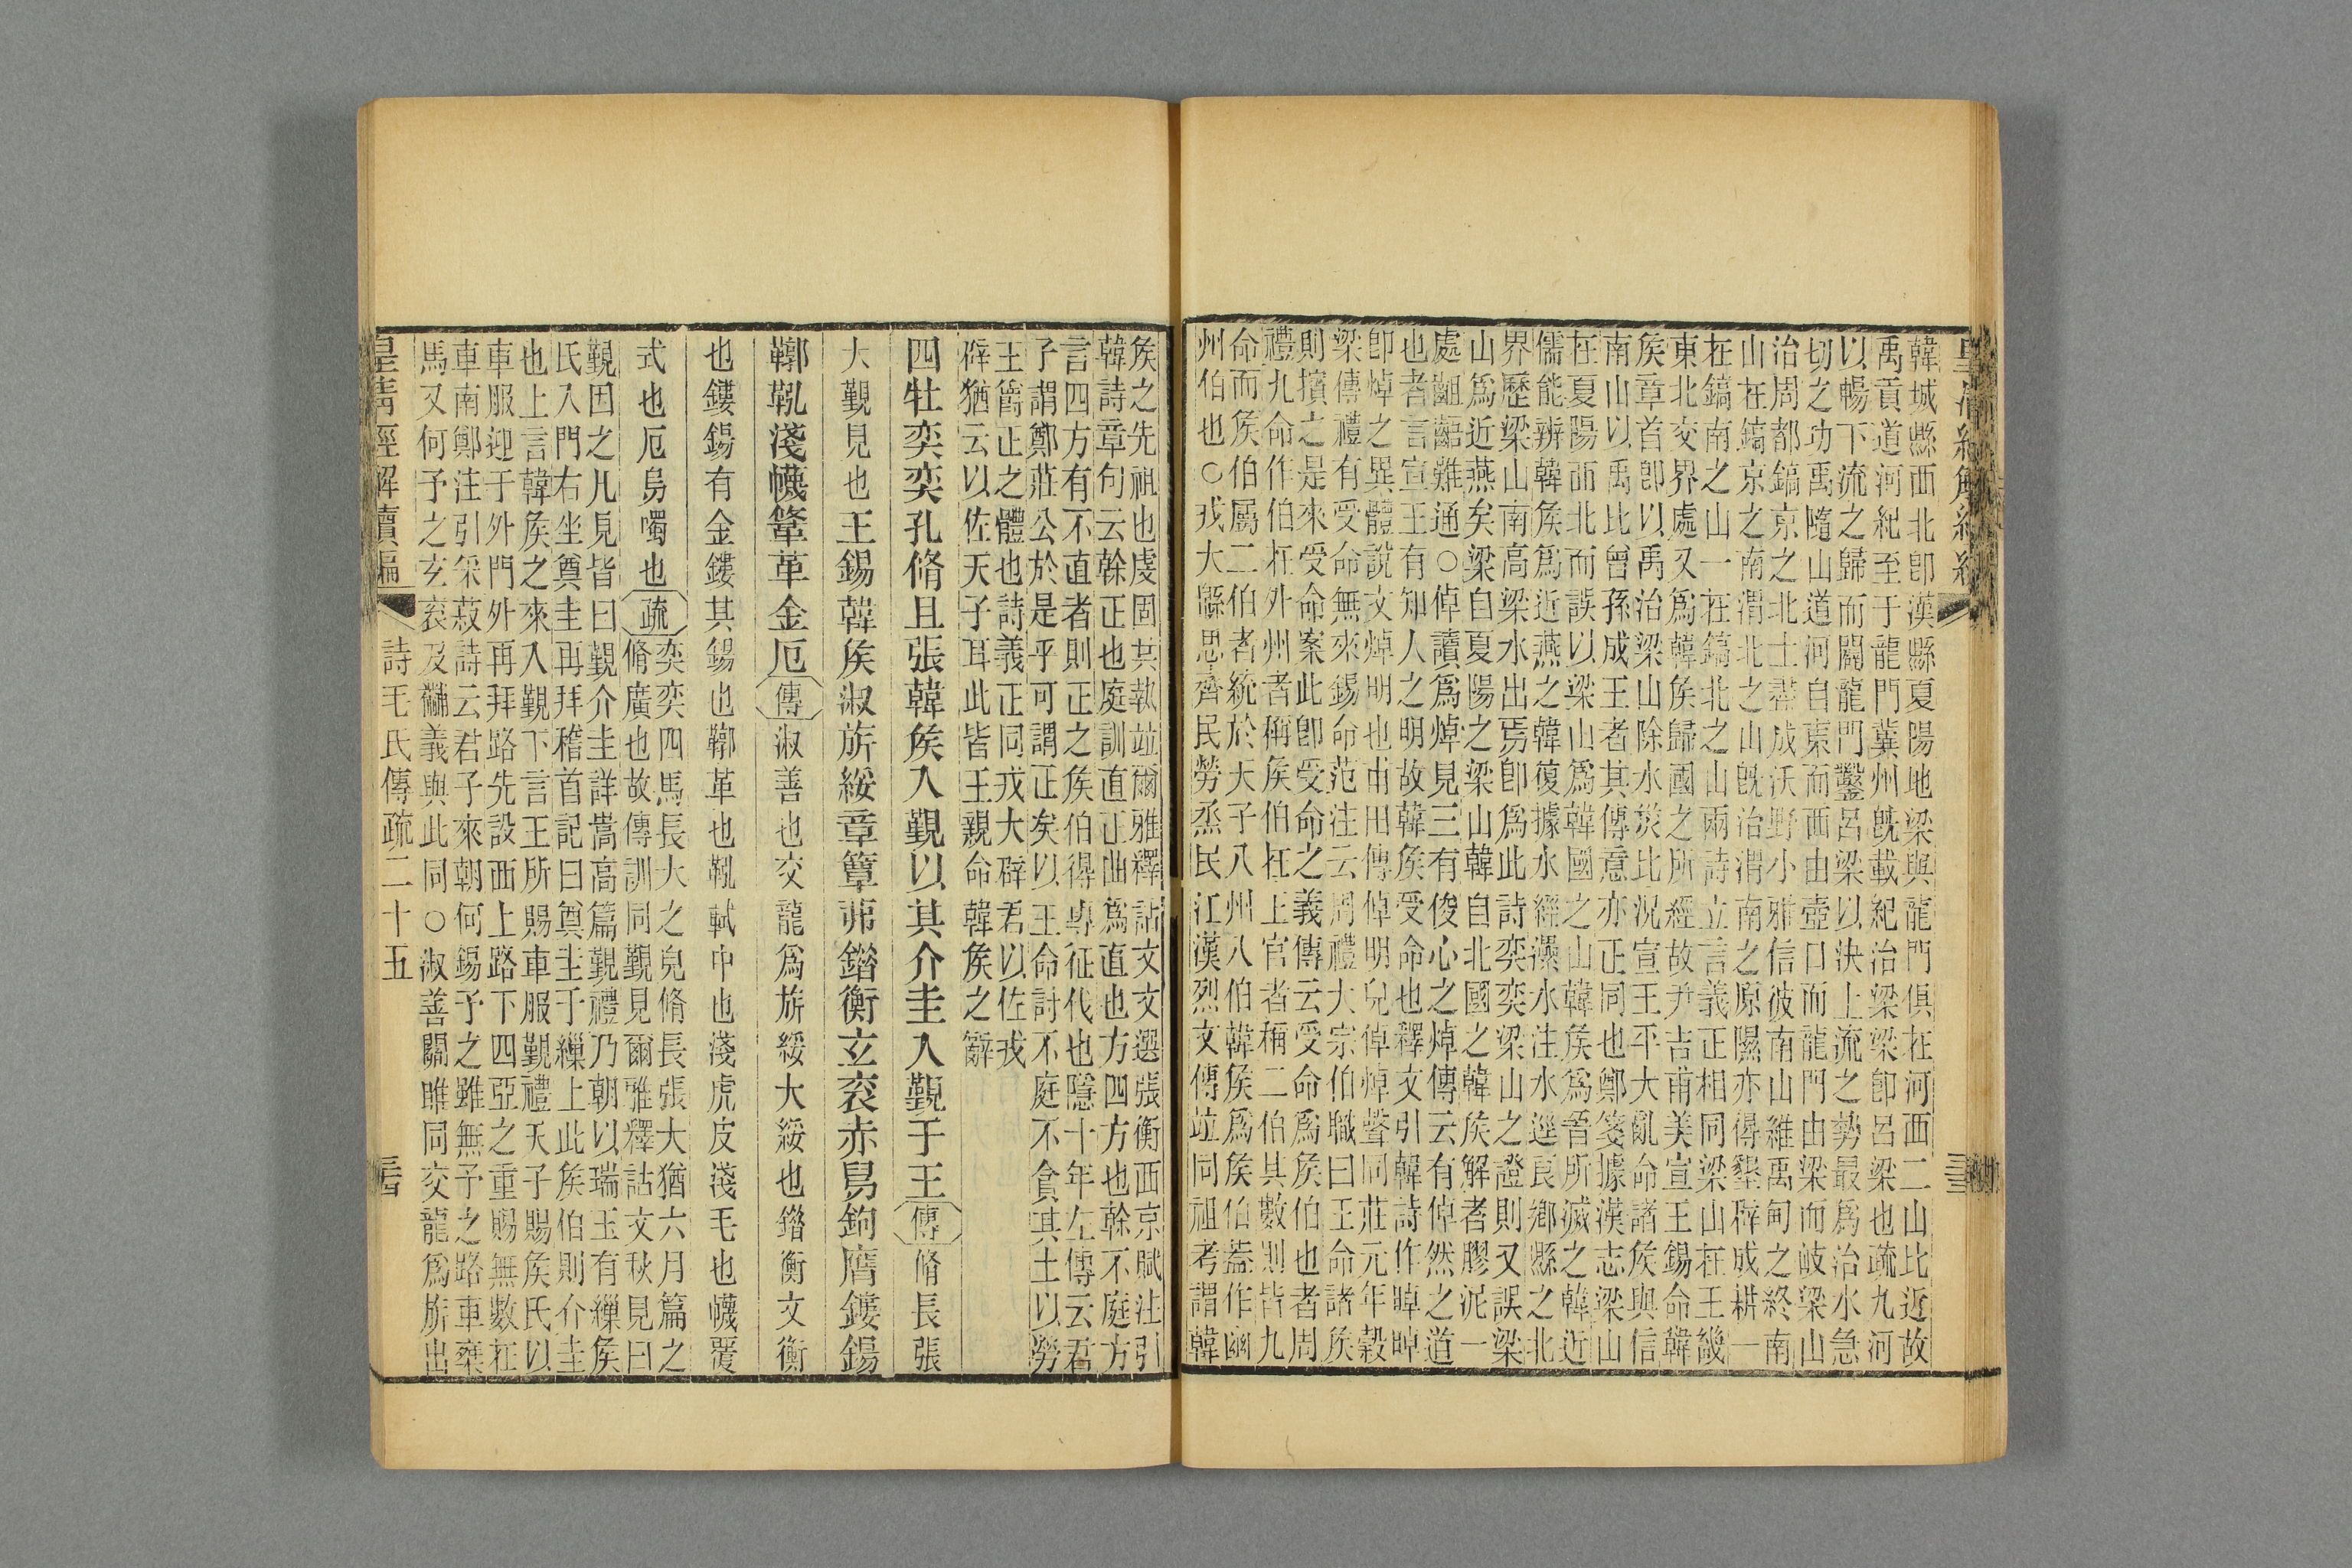 韓城縣西北卽漢縣夏陽地梁與龍門俱在河西二山比近故
禹貢道河紀至于龍門冀州旣載紀治梁梁卽呂梁也疏九河
以暢下流之歸而闢龍門鑿呂梁以決上流之勢最爲治水急
切之功禹隨山道河自東而西由壺口而龍門由梁而岐梁山
治周都鎬京之北土葢成沃野小雅信彼南山維禹甸之終南
山在鎬京之南渭北之山旣治渭南之原隰亦得墾辟成耕一
在鎬南之山一在鎬北之山兩詩立言義正相同梁山在王畿
東北交界處又爲韓矦歸國之所經故尹吉甫美宣王錫命韓
矦章首卽以禹治梁山除水災比况宣王平大亂命諸矦與信
南山以禹比曾孫成王者其傳意亦正同也鄭箋據漢志梁山
在夏陽西北而誤以梁山爲韓國之山韓矦爲晉所滅之韓近
儒能辨韓矦爲近燕之韓復據水經㶟水注水逕良鄉縣之北
界歷梁山南高梁水出焉卽爲此詩奕奕梁山之證則又誤梁
山爲近燕矣梁自夏陽之梁山韓自北國之韓矦解者膠泥一
處齟齬難通○倬讀爲焯見三有俊心之焯傳云有倬然之道
也者言宣王有知人之明故韓矦受命也釋文引韓詩作晫晫
卽焯之異體說文焯明也甫田傳倬明皃倬焯聲同莊元年穀
梁傳禮有受命無來錫命范注云周禮大宗伯職曰王命諸矦
則擯之是來受命案此卽受命之義傳云受命爲矦伯也者周
禮九命作伯在外州者稱矦伯在上官者稱二伯其數則皆九
命而矦伯屬二伯者統於天子八州八伯韓矦爲矦伯葢作幽
州伯也○戎大緜思齊民勞烝民江漢烈文傳竝同祖考謂韓
矦之先祖也虔固其執竝爾雅釋詁文文選張衡西京賦注引
韓詩章句云榦正也庭訓直正曲爲直也方四方也榦不庭方
言四方有不直者則正之矦伯得專征伐也隱十年左傳云君
子謂鄭莊公於是乎可謂正矣以王命討不庭不貪其土以勞
王爵正之體也詩義正同戎大辟君以佐戎
辟猶云以佐天子耳此皆王親命韓矦之辭
四牡奕奕孔脩且張韓矦入覲以其介圭入覲于王傳脩長張
大覲見也王錫韓矦淑旂綏章簟茀錯衡玄衮赤舄鉤膺鏤鍚
鞹鞃淺幭鞗革金厄傳淑善也交龍爲旂綏大綏也錯衡文衡
也鏤鍚有金鏤其鍚也鞹革也鞃軾中也淺虎皮淺毛也幭覆
式也厄烏噣也疏奕奕四馬長大之皃脩長張大猶六月篇之
脩廣也故傳訓同覲見爾雅釋詁文秋見曰
覲因之凡見皆曰覲介圭詳崧高篇覲禮乃朝以瑞玉有繅矦
氏入門右坐奠圭再拜稽首記曰奠圭于繅上此矦伯則介圭
也上言韓矦之來入覲下言王所賜車服覲禮天子賜矦氏以
車服迎于外門外再拜路先設西上路下四亞之重賜無數在
車南鄭注引采菽詩云君子來朝何錫予之雖無予之路車椉
馬又何予之玄衮及黼義與此同○淑善關雎同交龍爲旂出
皇淸經解續編 詩毛氏傳疏二十五